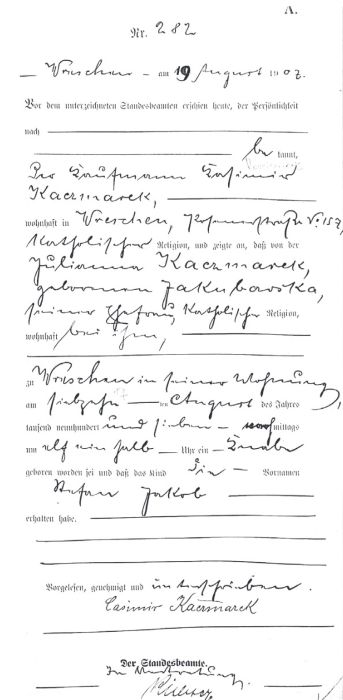 A.
Nr. 282
Wreschen am 19 August 1907.
Vor dem unterzeichneten Standesbeamten erschien heute, der Persönlichkeit
nach
be kannt,
Der Kaufmann Kasimir
Kaczmarek,
wohnhaft in Wreschen, Posenerstraße No 157,
Katholischer Religion, und zeigte an, daß von der
Julianna Kaczmarek,
geborenen Jakubowska,
seiner Ehefrau, Katholischer Religion,
wohnhaft bei ihm,
zu Wreschen in seiner Wohnung,
am siebzehn ten August des Jahres
tausend neunhundert und sieben mittags
um elf ein halb Uhr ein Knabe
geboren worden sei und daß das Kind die Vornamen
Stefan Jakob
erhalten habe.
Vorgelesen, genehmigt und unterschrieben.
Casimir Kaczmarek
Der Standesbeamte.
In Vertretung.